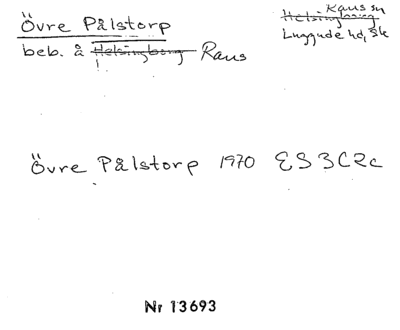 Övre Pålstorp
beb. å Helsingborg Raus
Raus sn
Helsingborg
Luggude hd, Sk
Övre Pålstorp 1970 ES 3C2c
Nr 13693